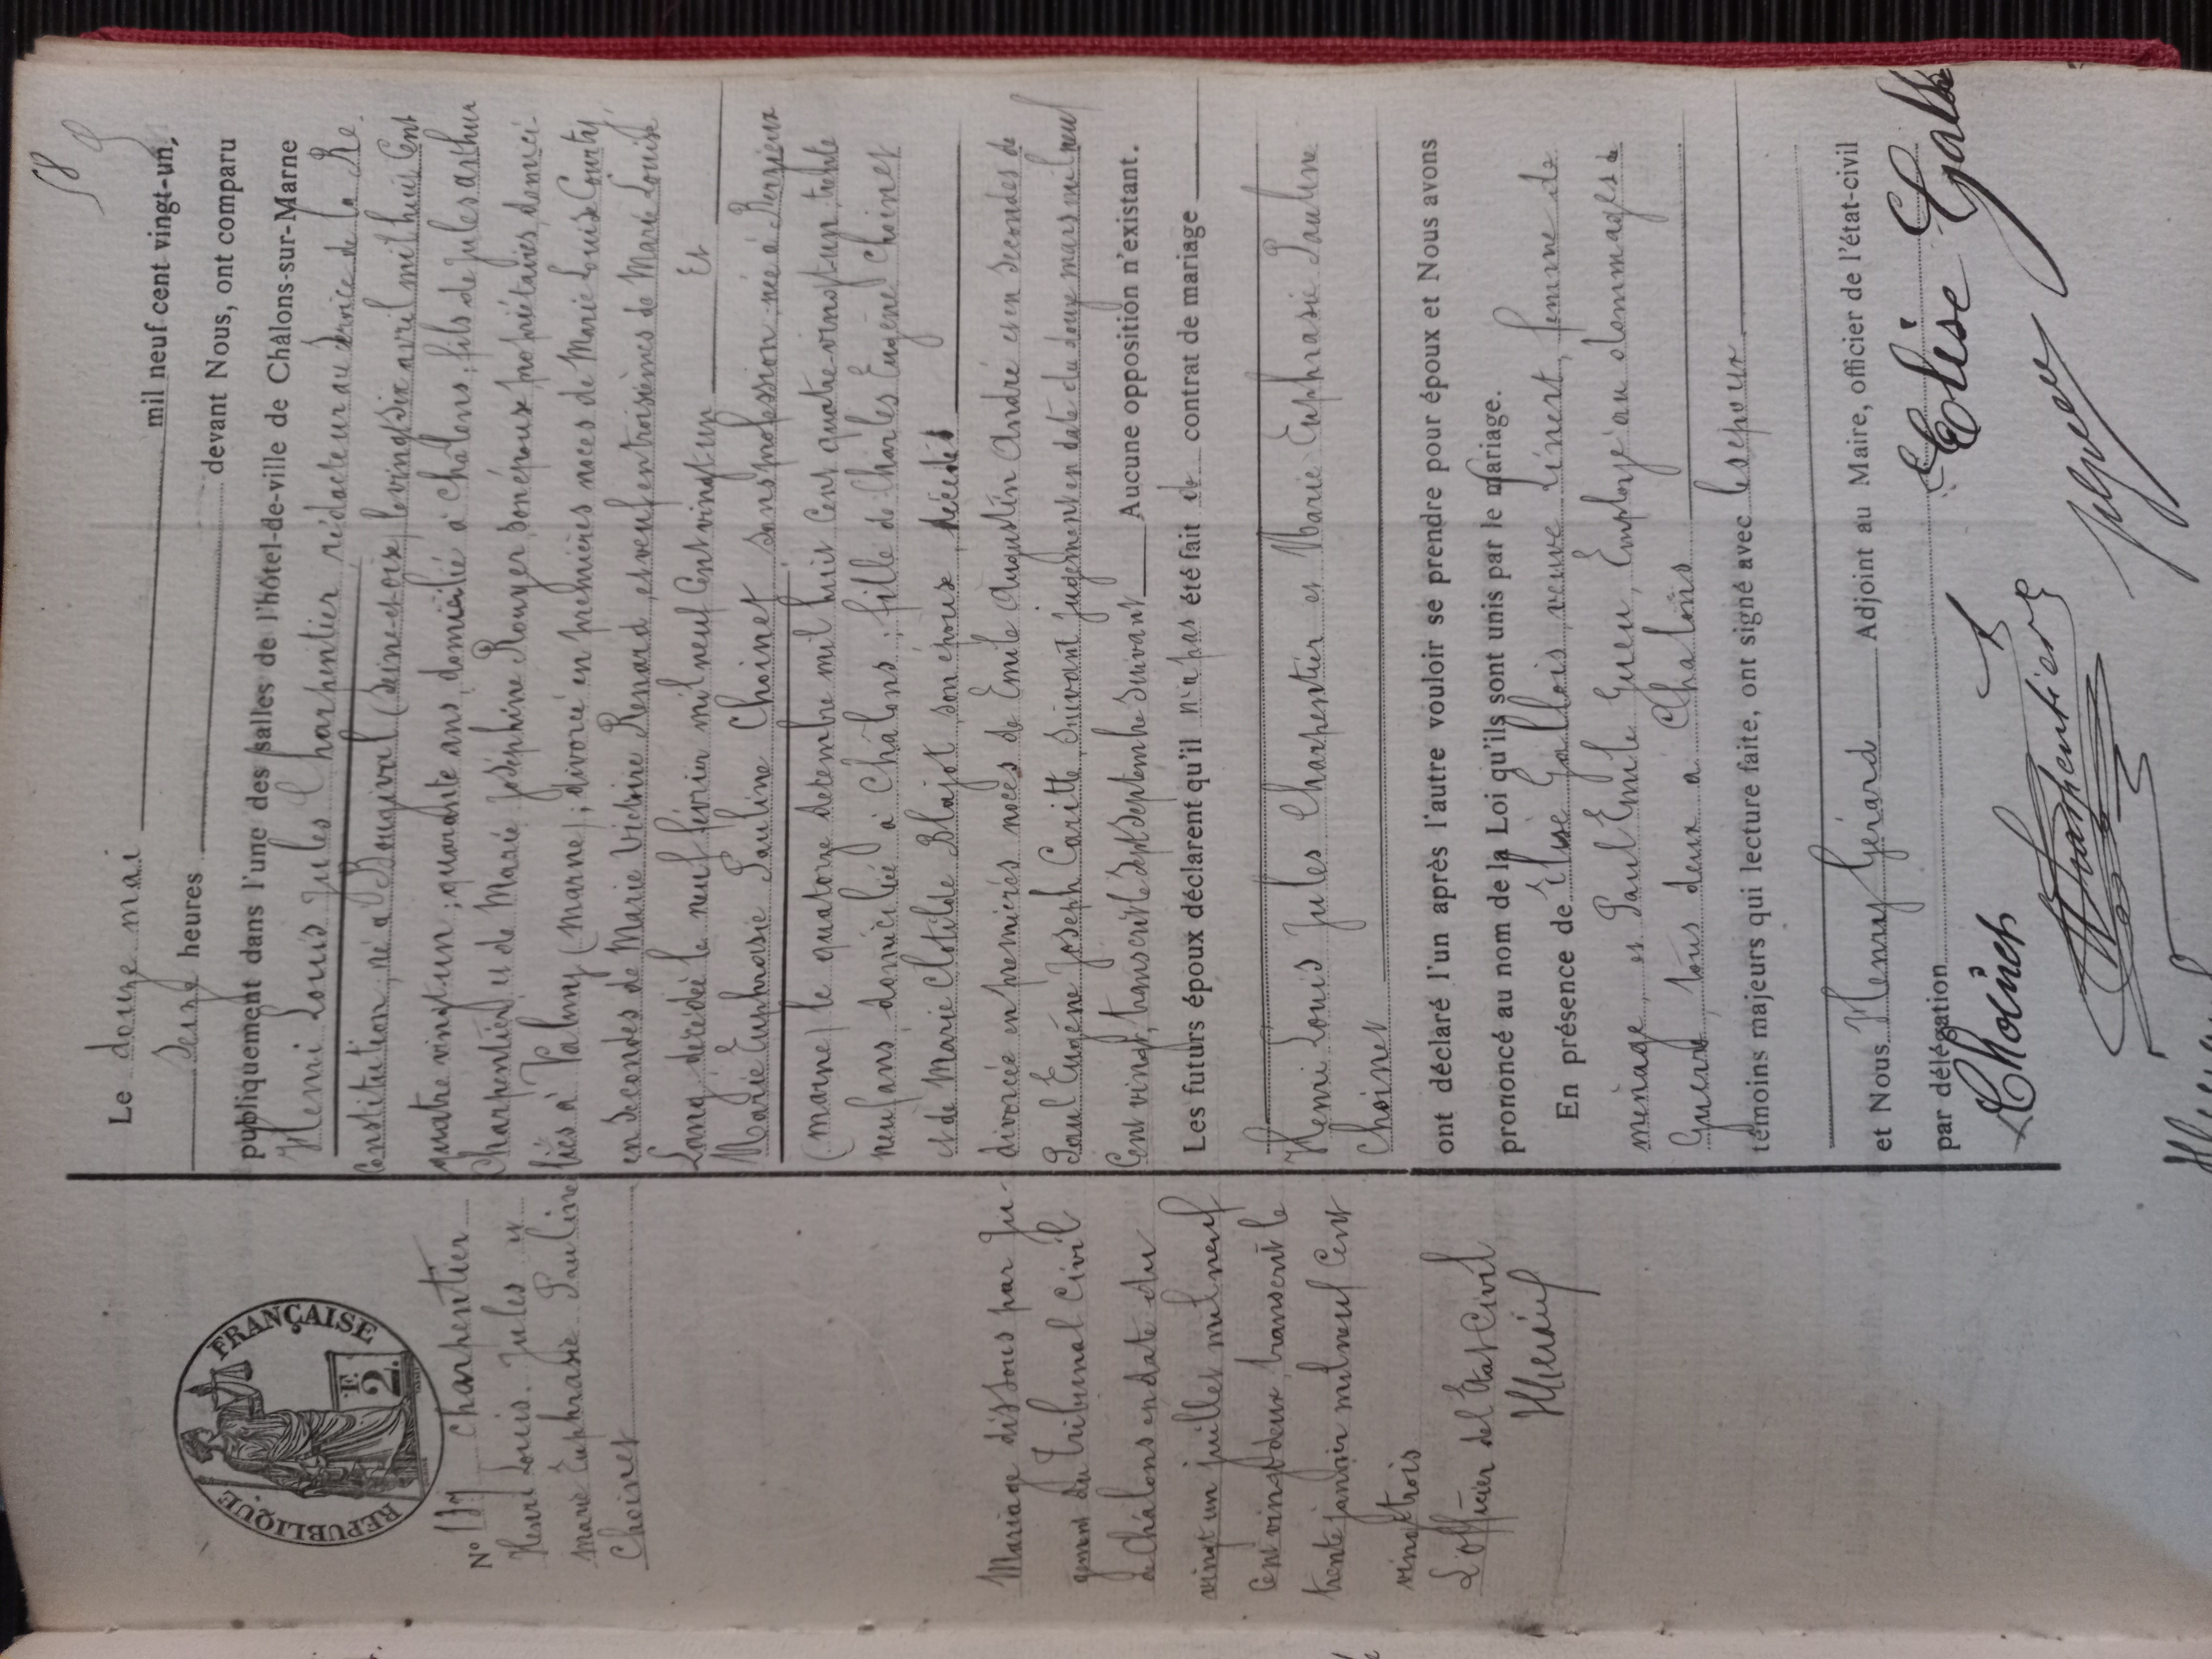 58
Le douze mai
mil neuf cent vingt-un,
seize heures devant Nous, ont comparu
publiquement dans l'une des salles de l'hôtel-de-ville de Châlons-sur-Marne
Henri Louis Jules Charpentier rédacteur au Service de la Re-
constitution, né à Bougival (Seine-et-Oise) le vingt six avril mil huit cent
quatre vingt un ; quarante ans, domicilié à Châlons ; fils de Jules Arthur
Charpentier et de Marie Joséphine Rouyer son épouse propriétaires domici-
liés à Valmy (Marne) ; divorcé en premières noces de Marie Louise Courty,
en secondes de Marie Victoire Renard et veuf en troisièmes de Marie Louise
Lang décédée le neuf février mil neuf cent vingt un Et
Marie Euphrasie Pauline Choinet sans profession née à Berzieux
(Marne) le quatorze décembre mil huit cent quatre-vingt-un trente
neuf ans domiciliée à Châlons ; fille de Charles Eugène Choinet
et de Marie Clotilde Blajot son épouse décédés
divorcée en premières noces de Emile Augustin André et en secondes de
Paul Eugène Joseph Caritte suivant jugement en date du douze mars mil neuf
cent vingt, transcrit le sept septembre suivant Aucune opposition n'existant.
Les futurs époux déclarent qu'il n'a pas été fait de contrat de mariage
Henri Louis Jules Charpentier et Marie Euphrasie Pauline
Choinet
ont déclaré l'un après l'autre vouloir se prendre pour époux et Nous avons
prononcé au nom de la Loi qu'ils sont unis par le mariage.
En présence de Elise Gallois veuve Linert, femme de
ménage, et Paul Emile Gueu, Employé au dommages de
Guerre, tous deux à Chalons
témoins majeurs qui lecture faite, ont signé avec les époux.
et Nous Henry Gérard Adjoint au Maire, officier de l'état-civil
par délégation
Choinet
Elise Gall
Charpentier
REPUBLIQUE FRANÇAISE
2 F.
N° 117 Charpentier
Henri Louis. Jules et
Marie Euphrasie Pauline
Choinet
Mariage dissous par Ju-
gement du Tribunal Civil
de Châlons en date du
vingt un juillet mil neuf
cent vingt deux, transcrit le
trente janvier mil neuf cent
vingt trois
L'officier de l'Etat Civil